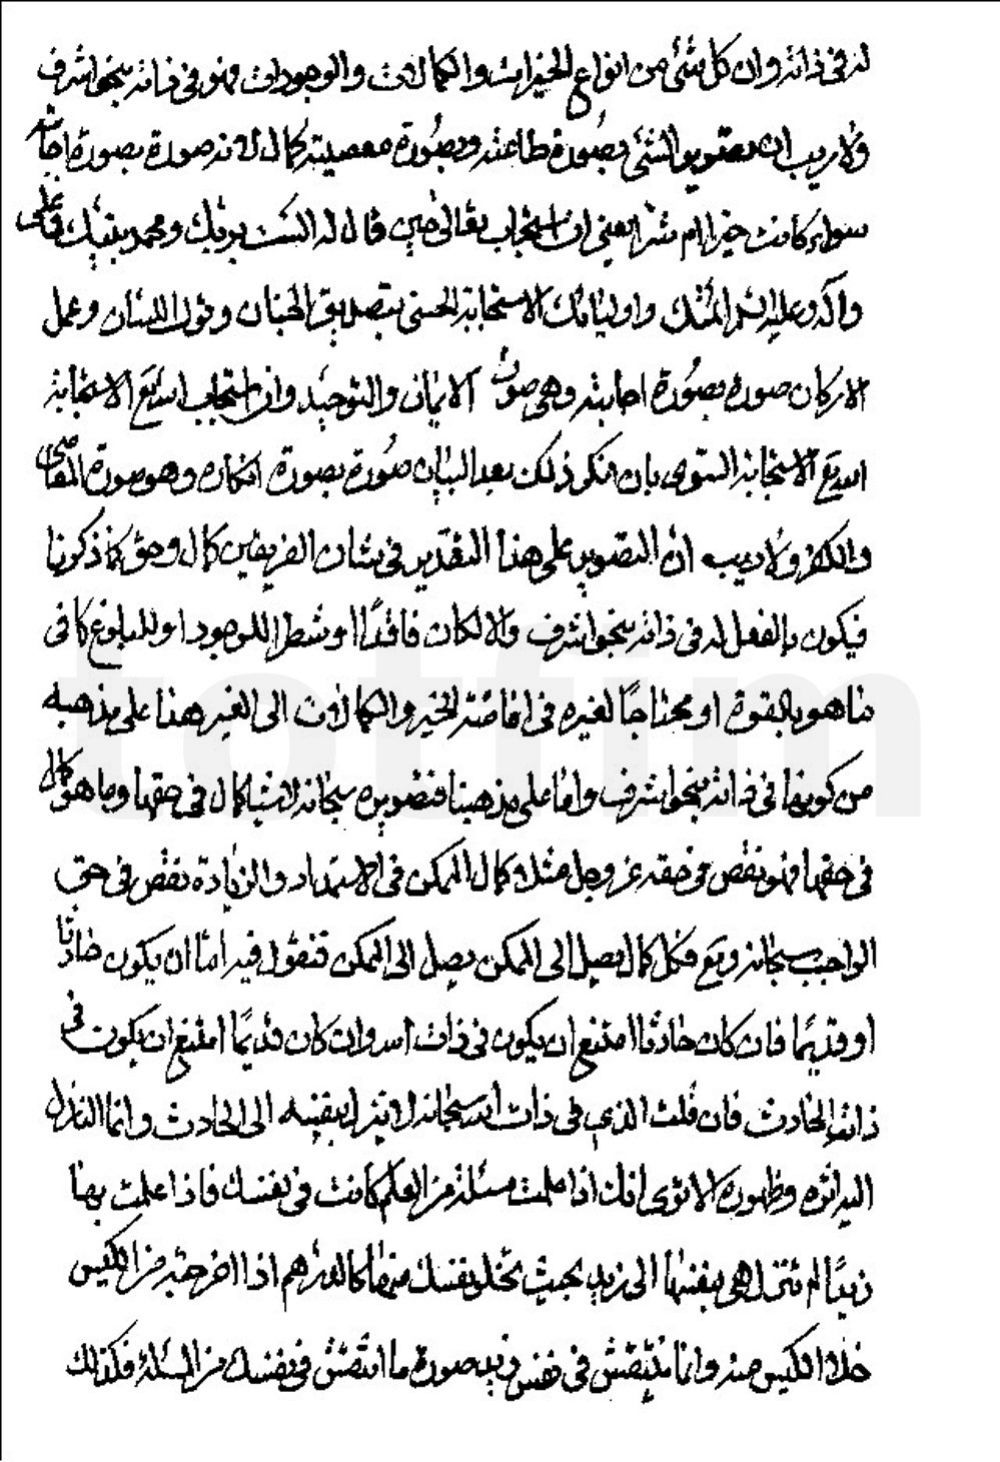 له فى ذاته وان كل شئ من انواع الخيرات والكمالات والوجودات فهو فى ذاته بنحو اشرف
ولا ريب ان تصوير الشئ بصورة طاعته وبصورة معصيته كمال لانه صورة بصورة اجابته
سواء كانت خيرا ام شرا يعنى ان استجاب تعالى حين قال له الست بربك ومحمد نبيك وعلى
واكد وعليه ائمتك واوليائك الاستجابة الحسنى بتصديق الجنان وقول اللسان وعمل
الاركان صورة بصورة اجابته وهى صورة الايمان والتوحيد وان استجاب اسابع الاستجابة
الاستجابة السوءى بان انكر ذلك بعد البيان صورة بصورة انكاره وهو صورة المعاصى
والكفر ولا ريب ان التصوير على هذا التقدير فى شان الفريقين كمال وحق كما ذكرنا
فيكون بالفعل له فى ذاته بنحو اشرف والا لكان فاقدا او شطرا للوجود او للبلوغ كما فى
ما هو بالقوة او محتاجا لغيره فى افاضة الخير والكمالات الى الغير هذا على مذهبه
من كونها فى ذاته بنحو اشرف واما على مذهبنا فتصويره سبحانه لاشياء كمال فى حقها وما هو كمال
فى حقها فهو نقص فى حقه عز وجل مثلا كمال الممكن فى الاستمداد والزيادة نقص فى حق
الواجب سبحانه وتع فكل كمال يصل الى الممكن يصل الى الممكن فنقول فيه اما ان يكون حادثا
او قديما فان كان حادثا امتنع ان يكون فى ذات الله وان كان قديما امتنع ان يكون فى
ذات الحادث فان قلت الذى فى ذات الله سبحانه لا ينزل بنفسه الى الحادث وانما النازل
اليه اثره وظهوره الا ترى انك اذا علمت مسئلة من العلم كانت فى نفسك فاذا علمت بها
زيدا لم تنزل هى بنفسها الى زيد بحيث تخلو نفسك منها كالدرهم اذا اخرجته من الكيس
خلا الكيس منه وانما تنتقش فى نفس زيد صورة ما انتقش فى نفسك من المسئلة فكذلك